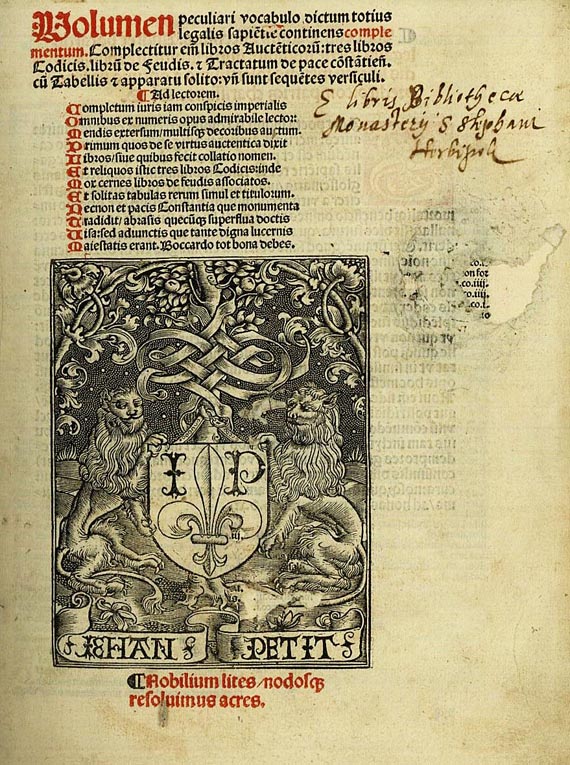 Volumen peculiari vocabulo dictum totius
legalis sapiẽtie continens comple
mentum. Complectitur em̃ libros Auctẽticorũ: tres libros
Codicis. librũ de Feudis. ⁊ Tractatum de pace cõstãtien̄.
cũ Tabellis ⁊ apparatu solito: vn̄ sunt sequẽtes versiculi.
¶ Ad lectorem.
Completum iuris iam conspicis imperialis
Omnibus ex numeris opus admirabile lector:
Mendis extersum/multisqꝫ decoribus auctum.
Primum quos de se virtus auctentica dixit
Libros/siue quibus fecit collatio nomen.
Et reliquos istic tres libros Codicis: inde
Mox cernes libros de feudis associatos.
Et solitas tabulas rerum simul et titulorum.
Necnon et pacis Constantia que monumenta
Tradidit/abrasis quecũqꝫ superflua doctis
Uisa: sed adiunctis que tante digna lucernis
Maiestatis erant. Boccardo tot bona debes.
E libris Bibliothecæ
Monasterij S Stephani
Herbipoli
.co.iiii.
.co.i.
I P
IEHAN PETIT
¶ Nobilium lites/nodosqꝫ
resoluimus acres.